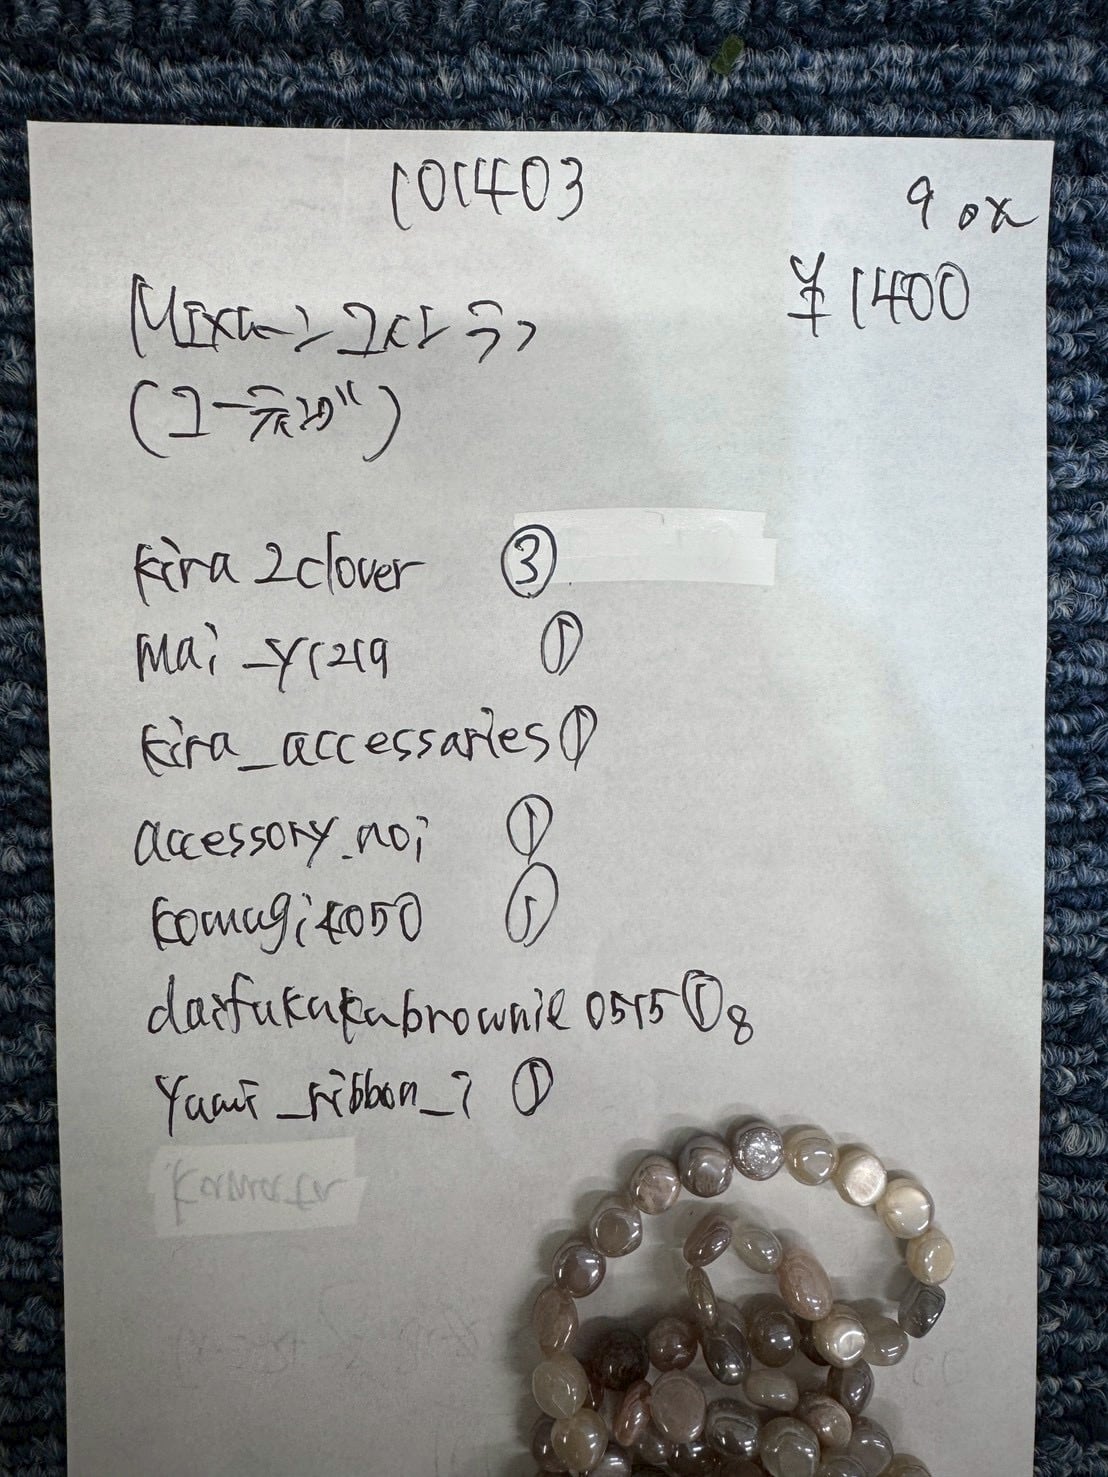 101403
9 ox
¥1400
(コーティング)
kira2clover ③
mai_y1219 ①
kira_accessaries ①
accessory_noi ①
komugi4050 ①
daifukukubrownie0515 ① 8
yumi_ribbon_i ①